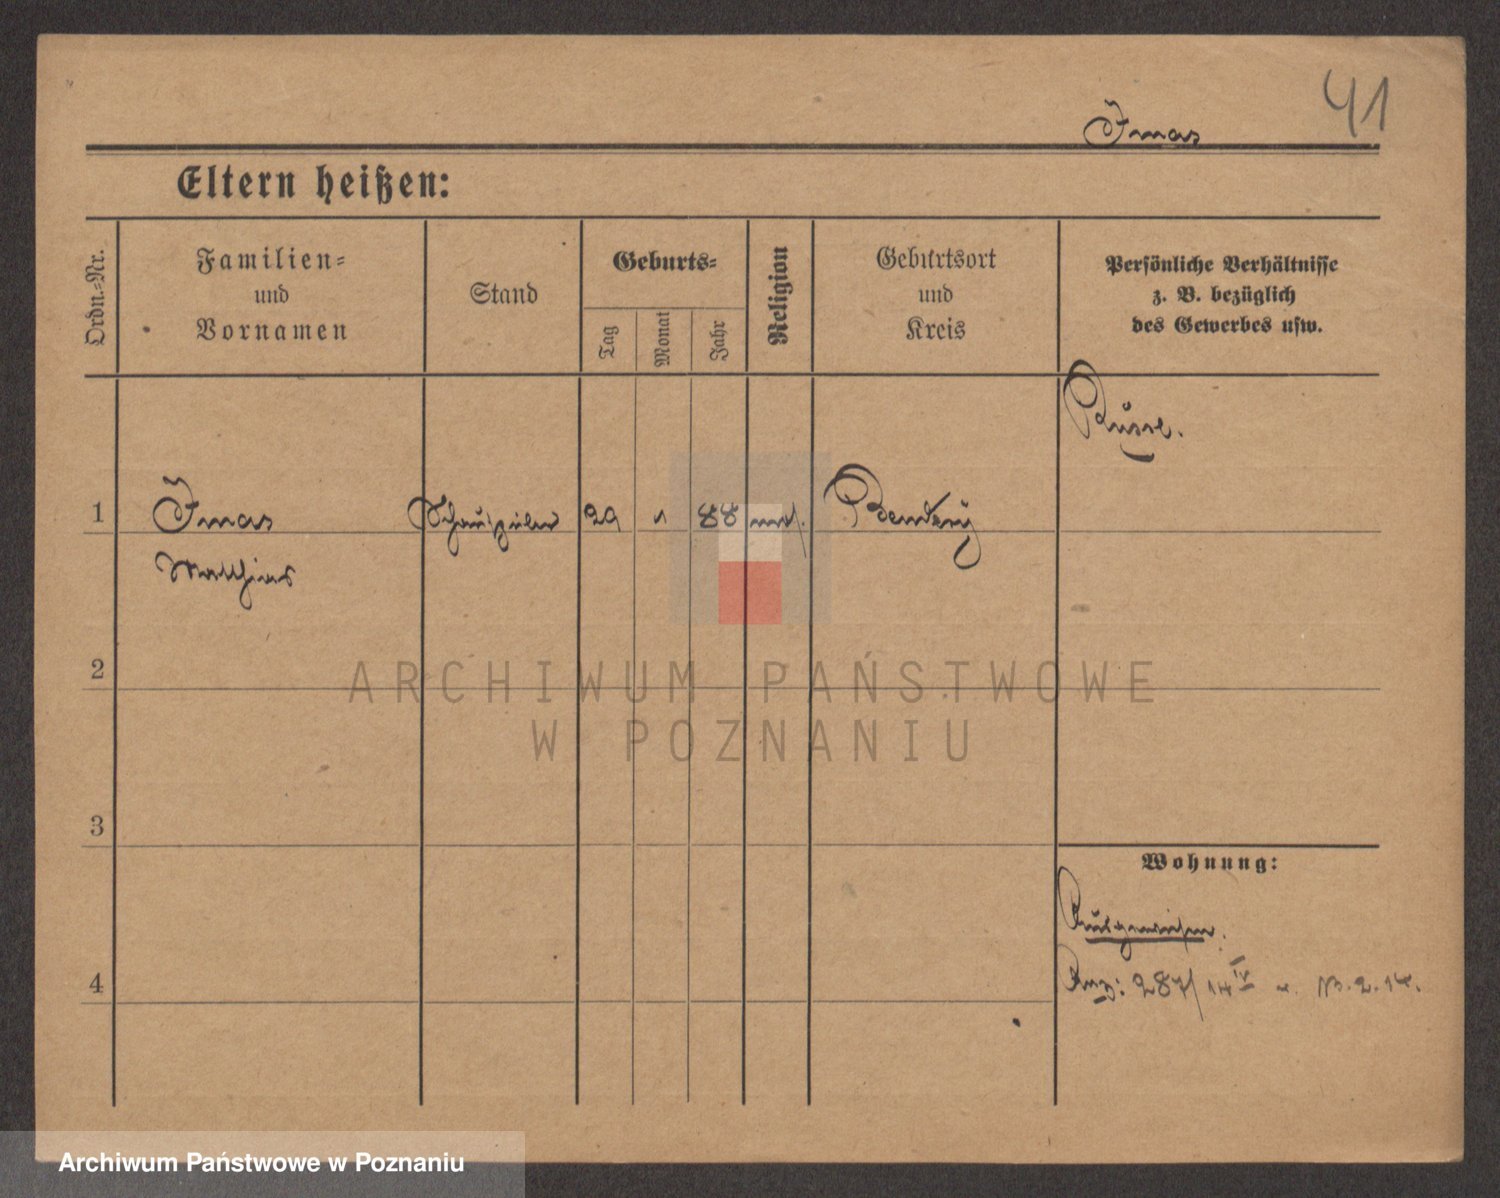 41
Imas
Eltern heißen:
Ordn.-Nr.
Familien-
und
Vornamen
Stand
Geburts-
Tag
Monat
Jahr
Religion
Geburtsort
und
Kreis
Persönliche Verhältnisse
z. B. bezüglich
des Gewerbes usw.
Russe.
1 Imas Schauspieler 29 1 88 mos. Bendery
Matthias
2
3
4
Wohnung:
Ausgewiesen.
287/14
ARCHIWUM PAŃSTWOWE
W POZNANIU
Archiwum Państwowe w Poznaniu